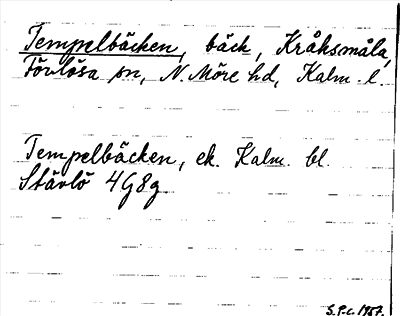 Tempelbäcken, bäck, Kråksmåla,
Förlösa sn, N. Möre hd, Kalm. l.
Tempelbäcken, ek. Kalm. bl.
Stävlö 4G8g
S.P.C. 1957.